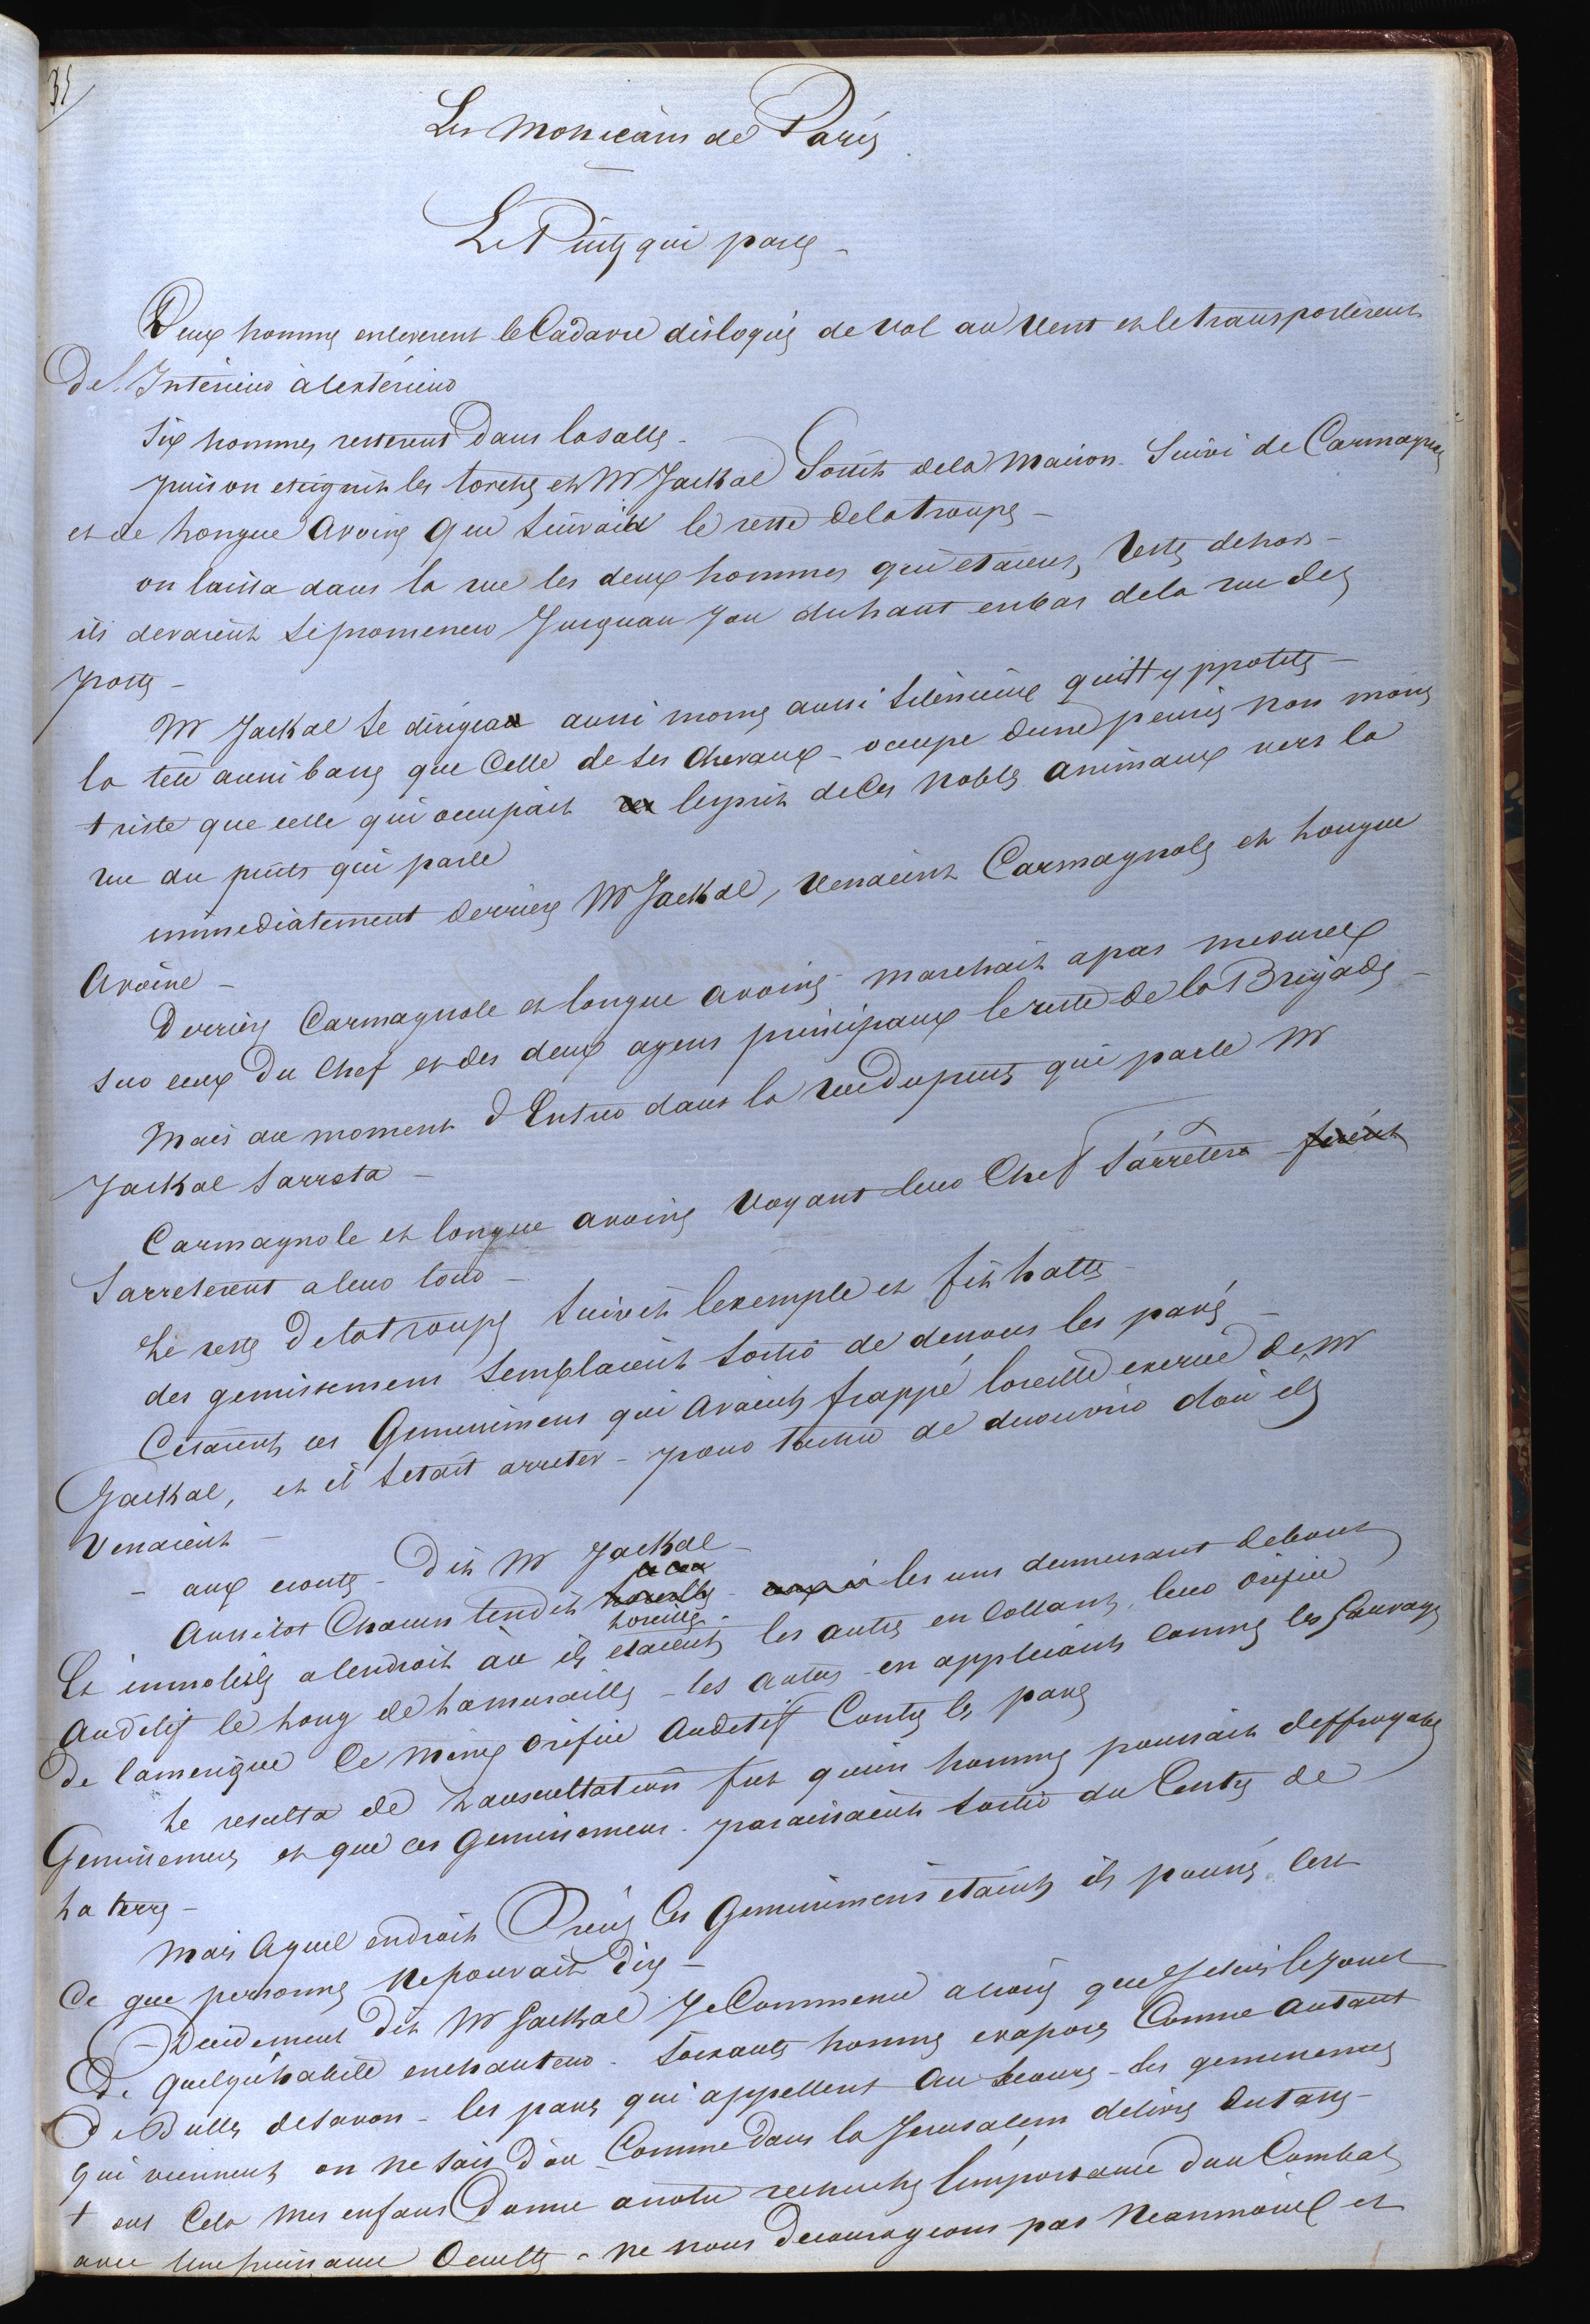 31
Les Mohicans de Paris
Le Puits qui parle -
Deux hommes enleverent le Cadavre disloqué de Vol au Vent et le transporterent
De l'Interieur à lexterieur
Six hommes resterent Dans la salle -
puis on eteignit les torches et Mr Jackal Sortit dela Maison - Suivi de Carmagnole
et de longue Avoine que Suivait le reste dela troupe -
on laissa dans la rue les deux hommes qui etaient restes dehors -
ils devaient se promener Jusquau Jour du haut en bas dela rue des
postes -
Mr Jackal se dirigea aussi morne aussi silencieux quHyppolite -
la tete aussi basse que Celle de ses Chevaux - occupe dune pensée non moins
triste que celle qui occupait lesprit de Ces nobles animaux vers la
rue du puits qui parle
immediatement derriere Mr Jackal, venaient Carmagnole et longue
Avoine -
Derriere Carmagnole et longue avoine marchait a pas mesurés
sur ceux Du Chef et des deux agens principaux le reste de la Brigade -
Mais au moment d'Entrer dans la rue du puits qui parle Mr
Jackal sarreta -
Carmagnole et longue avoine Voyant leur Chef s'arreter firent
Sarreterent a leur tour -
Le reste De la troupe suivit lexemple et fit halte -
des gemissemens semblaient sortir de dessous les pavés -
Cetaient ces Gemissemens qui avaient frappé loreille exercée de Mr
Jackal, et il setait arreter - pour tacher de decouvrir dou ils
Venaient -
- aux ecoutes - Dit Mr Jackal -
Aussitot Chacun tendit loreille - les uns demeurant debout
Et immobiles a lendroit où ils etaient les autres en Collant leur orifice
Auditif le long de la muraille - les autres en appliquant comme les Sauvages
De lamerique Ce meme orifice Auditif Contre les pavés
Le resulta de lauscultation fut quun homme poussait deffroyables
Gemissemens et que ces Gemissemens - paraissaient sortir du Centre de
La terre -
Mais a quel endroit Precis Ces Gemissemens etaient ils poussés Cest
Ce que personne ne pouvait dire -
- Decidement dit Mr Jackal Je Commence a croire que Je suis le Jouet
De quelqu'habile enchanteur - soixante hommes evaporés Comme autant
De Bulles de savon - les pavés qui appellent Au secours - des gemissemens
qui viennent on ne sais d'ou Comme dans la Jerusalem delivrée du tasse -
tout Cela mes enfans Donne a notre recherche limportance dun Combat
avec Une puissance Occulte - ne nous decourageons pas Neanmoins et